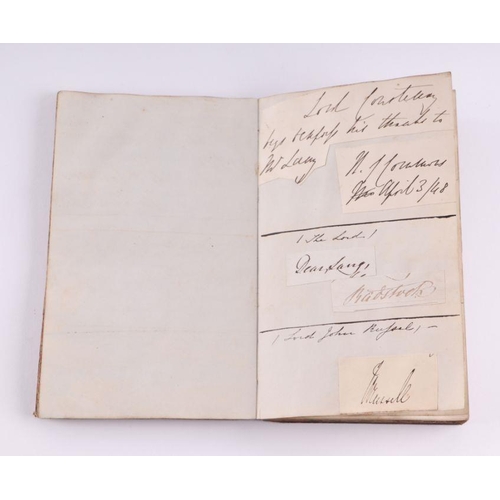 Lord Courtenay
begs to express his thanks to
Mr Lang
H. of Commons
April 3/48
(The Lord)
Dear Lang,
Radstock
(Lord John Russell,—
Russell